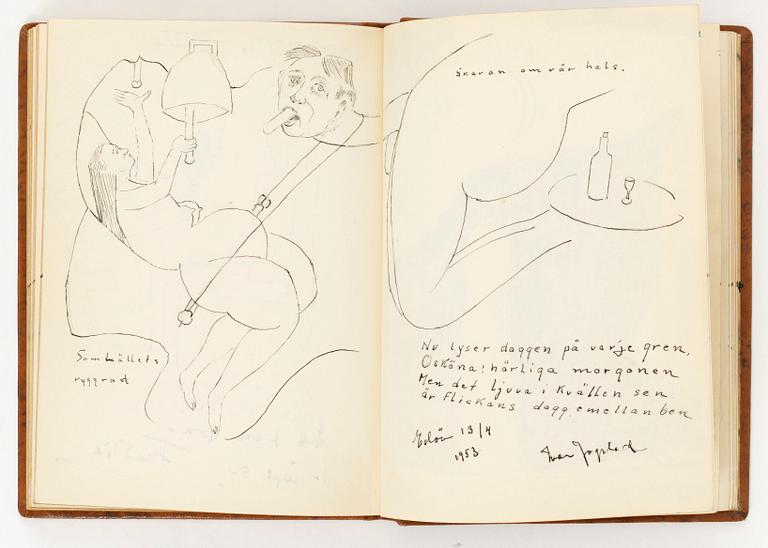 Samhällets
ryggrad
Snaran om vår hals.
Nu lyser daggen på varje gren,
Osköna! härliga morgonen
Men det ljuva i Kvällen sen
är Flickans dagg emellan ben
13/4
1953